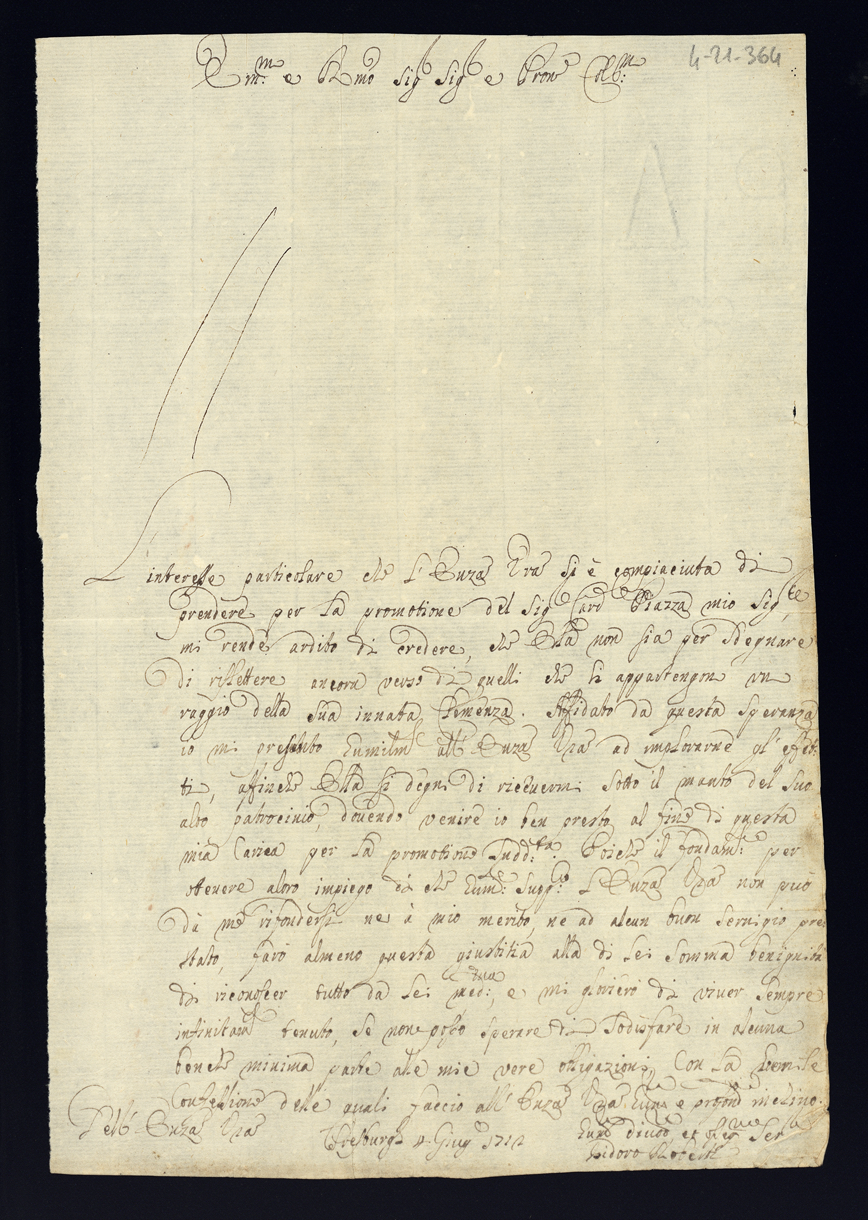 4-21-364
Em:mo e Rmo Sig.r Sig.r e Pron.e Col:mo
L'interesse particolare che l'Emza Vra si è compiaciuta di
prendere per la promotione del Sig.r Card. Piazza mio Sig.re
mi rende ardito di credere, che Ella non sia per sdegnare
di riflettere ancora verso di quelli che li appartengon un
raggio della sua innata Clemenza. Affidato da questa speranza
io mi presento humilm.e all'Emza Vra ad implorarne gl'effet-
ti, affinche Ella si degni di ricevermi sotto il manto del suo
alto patrocinio, dovendo venire io ben presto al fine di questa
mia Carica per la promotione sudd:ta. Poiche il fondam:to per
ottenere altro impiego di che hum:te supp:co l'Emza Vra non può
da me rifondersi ne à mio merito, ne ad alcun buon servigio pre-
stato, farò almeno questa giustitia alla di lei somma benignità
di riconoscer tutto da lei med:ma, e mi glorierò di viver sempre
infinitam.e tenuto, se non posso sperare di sodisfare in alcuna
benche minima parte alle mie vere obligazioni, Con la
Confessione delle quali faccio all'Emza Vra hum.a e profond.a riv
Dell'Emza Vra
Presburg Giug.o 1712
Hum.o divot.o et obl.mo Ser
Isidoro